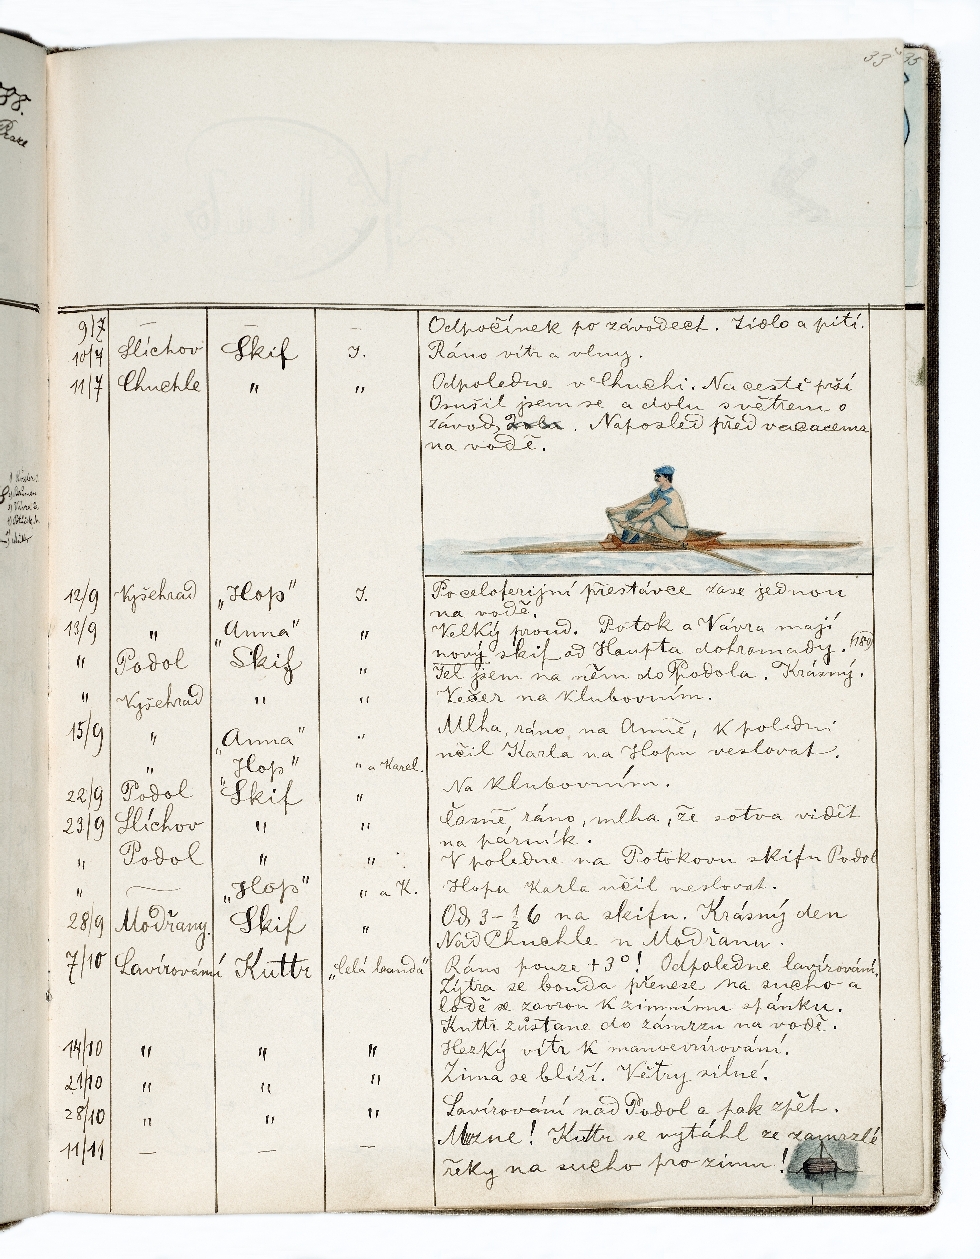 33 35
88.
9/7 — — — Odpočinek po závodech. Jídlo a pití.
10/7 Slíchov Skif J. Ráno vítr a vlny.
11/7 Chuchle " " Odpoledne v Chuchli. Na cestě prší
Osušil jsem se a dolu s větrem o
závod. Naposled před vacacema
na vodě.
12/9 Vyšehrad „Hop" J. Poceloferijní přestávce zase jednou
na vodě.
13/9 " „Anna" " Velký proud. Potok a Vávra mají
nový skif od Haupta dohromady. (189)
" Podol Skif " Jel jsem na něm do Podola. Krásný.
" Vyšehrad " " Večer na klubovním.
15/9 " „Anna" " Mlha, ráno na Anně, k polední
" „Hop" " a Karel. učil Karla na Hopu veslovat.
22/9 Podol Skif " Na klubovním.
23/9 Slíchov " " Časně ráno, mlha, že sotva vidět
na párník.
" Podol " " V poledne na Potokovu skifu Podol
" — „Hop" " a K. Hopu Karla učil veslovat.
28/9 Modřany. Skif " Od 3 - ½ 6 na skifu. Krásný den
Nad Chuchle u Modřanu.
7/10 Lavírování Kuttr „Celá banda" Ráno pouze +3°! Odpoledne lavírování.
Zýtra se bouda přenese na sucho a
lodě se zavrou k zimnímu spánku.
Kuttr zůstane do zámrzu na vodě.
14/10 " " " Hezký vítr k manoevrírování.
21/10 " " " Zima se blíží. Větry silné.
28/10 " " " Lavírování nad Podol a pak zpět.
11/11 — — — Mrzne! Kuttr se vytáhl ze zamrzlé
řeky na sucho pro zimu!